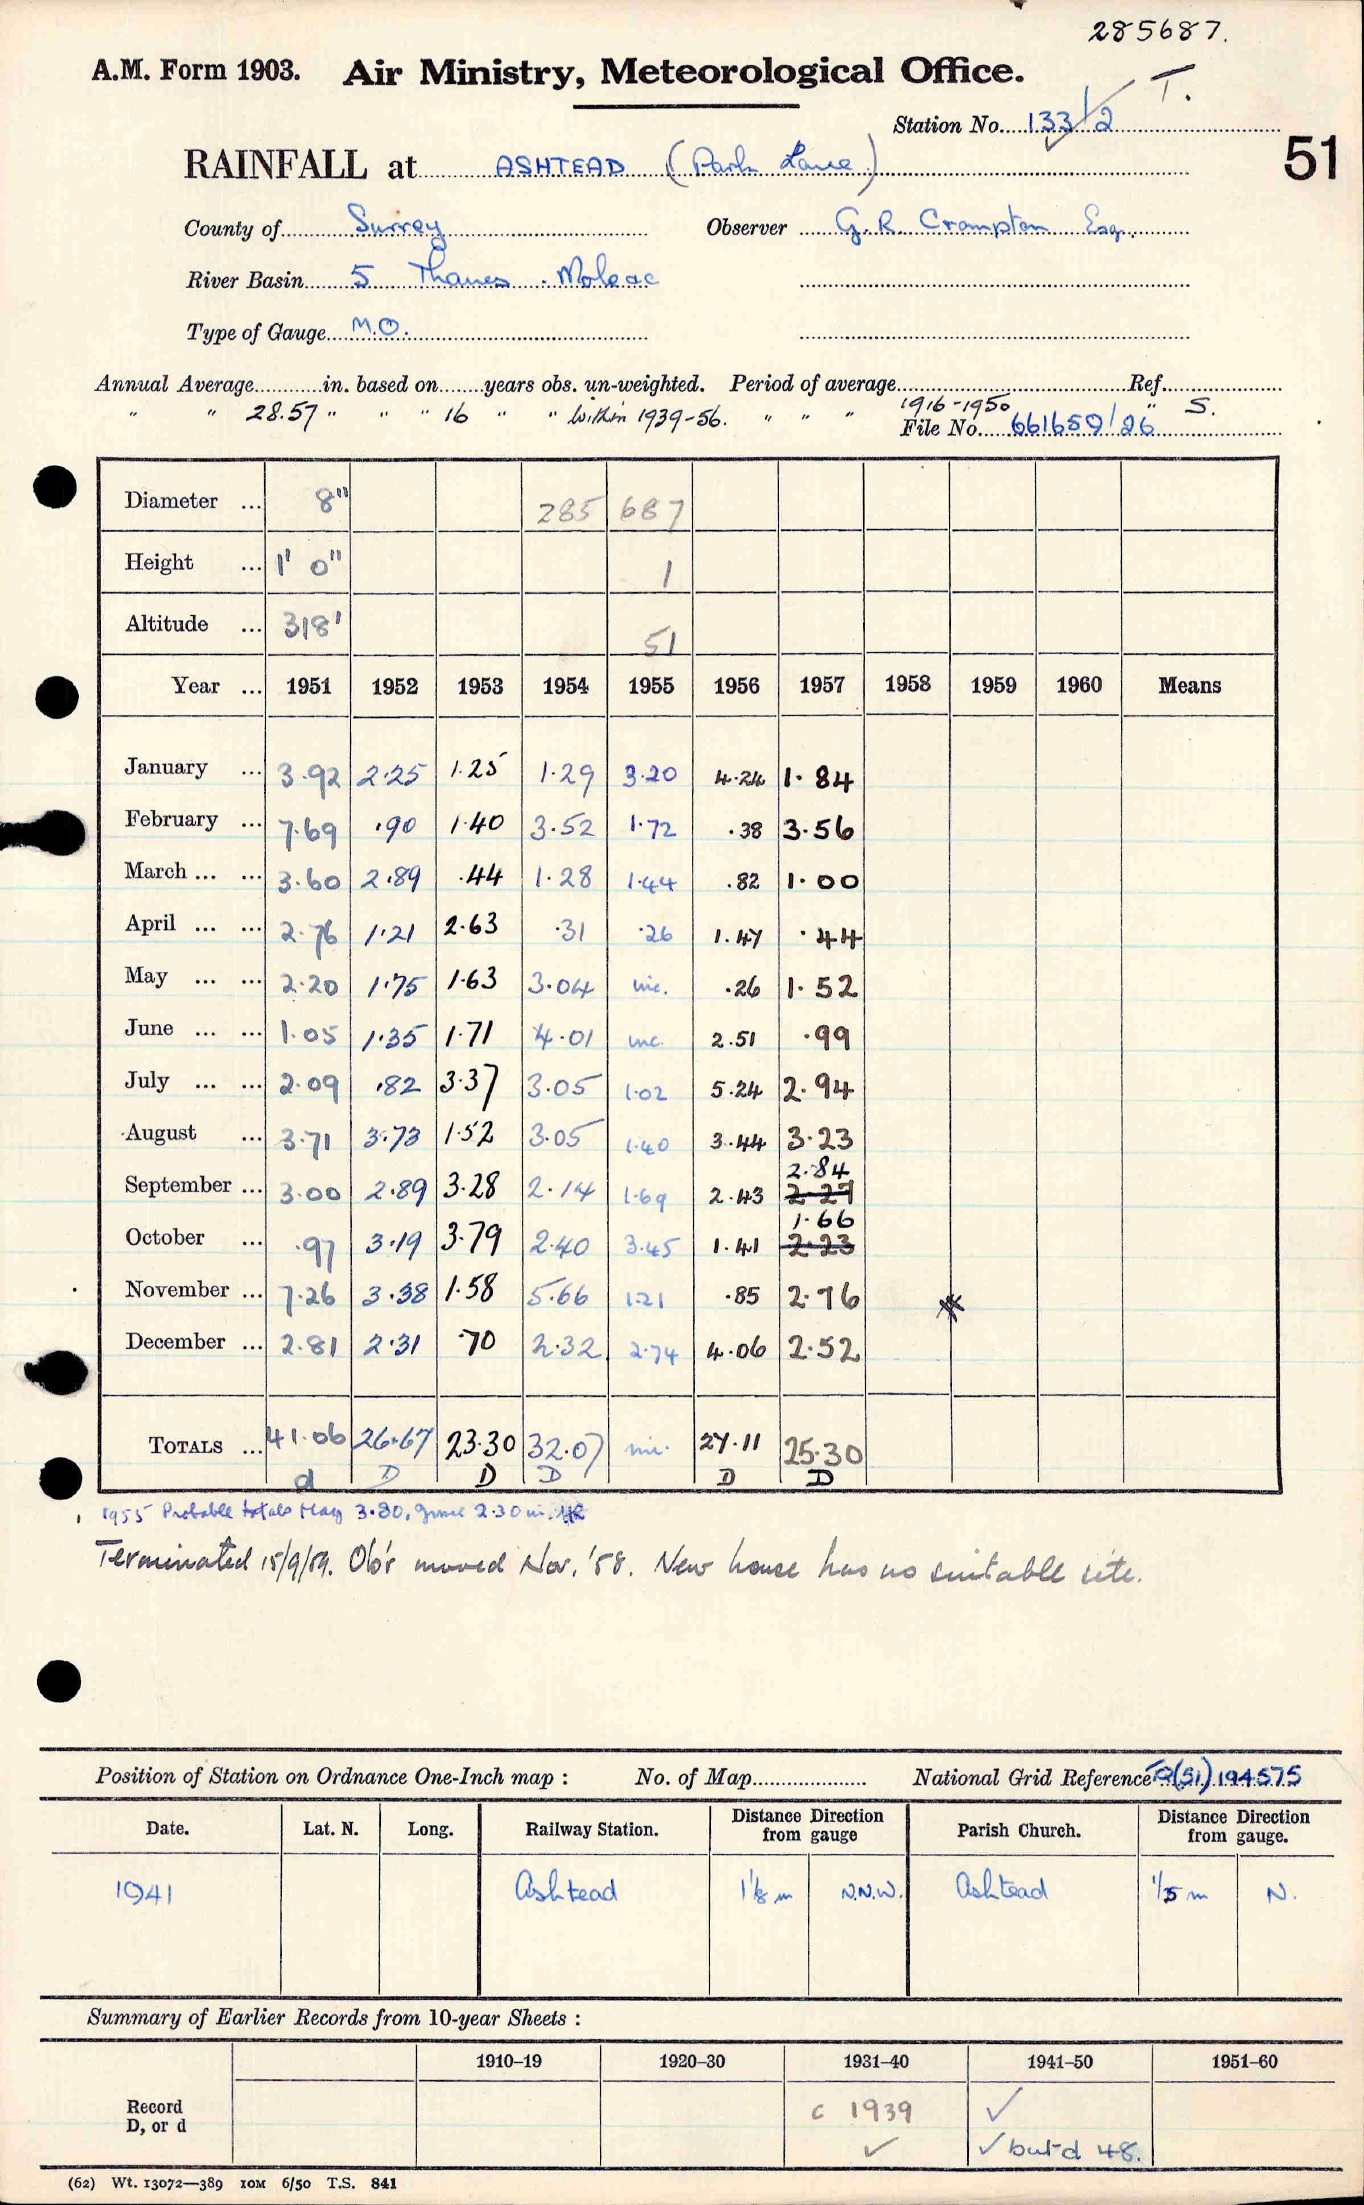 285687.
A.M. Form 1903. Air Ministry, Meteorological Office.
T.
Station No. 133/2
51
RAINFALL at ASHTEAD (Park Lane)
County of Surrey Observer G. R. Crampton Esq.
River Basin 5 Thames . Mole &c
Type of Gauge M.O.
Annual Average in. based on years obs. un-weighted. Period of average Ref.
" " 28.57 " " " 16 " " within 1939-56. " " " 1916-1950 " S.
File No. 661659/26
Diameter ... 8" 285 687
Height ... 1' 0" 1
Altitude ... 318' 51
Year ... 1951 1952 1953 1954 1955 1956 1957 1958 1959 1960 Means
January ... 3.92 2.25 1.25 1.29 3.20 4.24 1.84
February ... 7.69 .90 1.40 3.52 1.72 .38 3.56
March ... ... 3.60 2.89 .44 1.28 1.44 .82 1.00
April ... ... 2.76 1.21 2.63 .31 .26 1.47 .44
May ... ... 2.20 1.75 1.63 3.04 inc. .26 1.52
June ... ... 1.05 1.35 1.71 4.01 inc. 2.51 .99
July ... ... 2.09 .82 3.37 3.05 1.02 5.24 2.94
August ... 3.71 3.73 1.52 3.05 1.40 3.44 3.23
2.84
September ... 3.00 2.89 3.28 2.14 1.69 2.43 2.27
1.66
October ... .97 3.19 3.79 2.40 3.45 1.41 2.23
November ... 7.26 3.38 1.58 5.66 1.21 .85 2.76
December ... 2.81 2.31 .70 2.32 2.74 4.06 2.52
TOTALS ... 41.06 26.67 23.30 32.07 inc. 27.11 25.30
d D D D D D
1955 Probable totals May 3.80, June 2.30 in.
Terminated 15/9/59. Ob'r moved Nov. '58. New house has no suitable site.
Position of Station on Ordnance One-Inch map : No. of Map National Grid Reference TQ(51) 194575
Date. Lat. N. Long. Railway Station. Distance Direction from gauge Parish Church. Distance Direction from gauge.
1941 Ashtead 1⅛ m N.N.W. Ashtead 1/5 m N.
Summary of Earlier Records from 10-year Sheets :
1910–19 1920–30 1931–40 1941–50 1951–60
Record D, or d c 1939 ✓
✓ ✓ but d 48.
(62) Wt. 13072—389 10M 6/50 T.S. 841